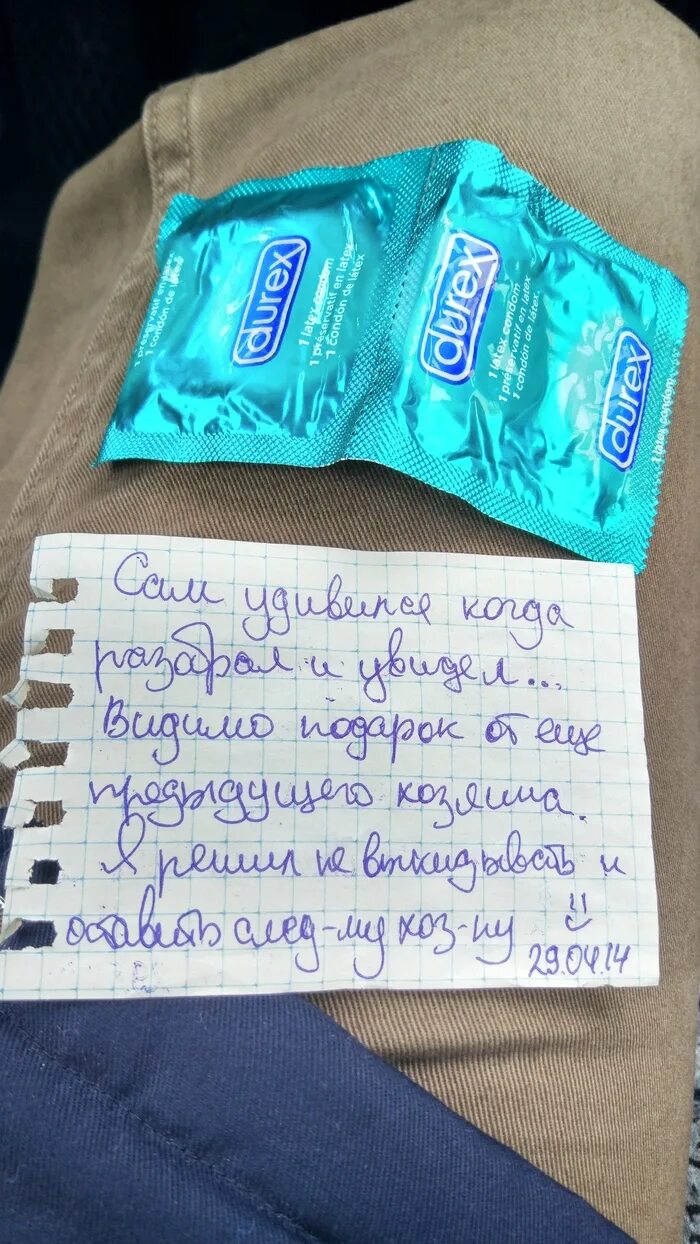 durex
1 latex condom
1 préservatif en latex
1 condón de látex
1 préservatif en latex
1 condón de látex
durex
1 latex condom
1 préservatif en latex
1 condón de látex.
durex
1 latex condom
Сам удивился когда
разабрал и увидел...
Видимо подарок от еще
предыдущего хозяина.
Я решил не выкидывать и
оставить след-му хоз-ну
29.04.14